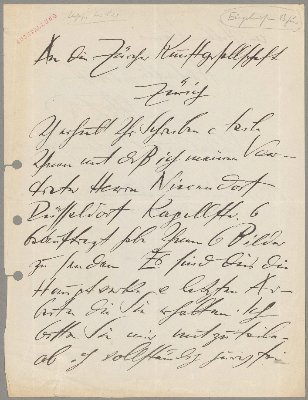 An die Zürcher Kunstgesellschaft
Zürich
Ich erhielt Ihr Schreiben & teile
Ihnen mit daß ich meinen Ver-
treter Herrn Nierendorf-
Düsseldorf Kapellstr. 6
beauftragt habe Ihnen 6 Bilder
zu senden Es sind dies die
Hauptwerke & letzten Ar-
beiten die Sie erhalten. Ich
bitte Sie mir mitzuteilen
ob ich vollständig juryfrei